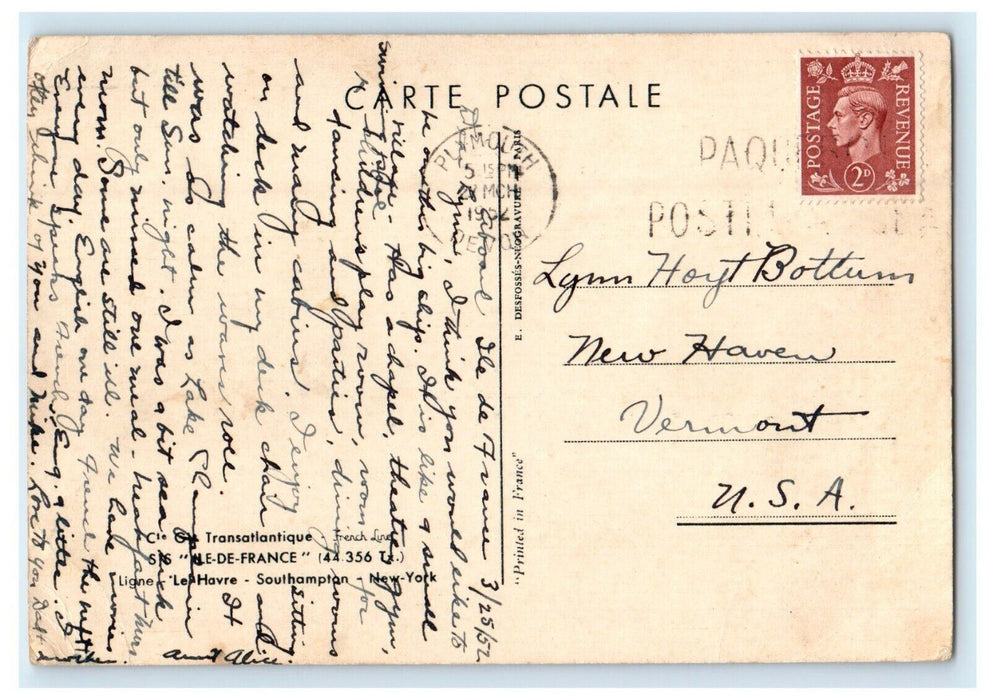 CARTE POSTALE
Aboard Ile de France 3/25/52
Dear Lynn, I think you would like to
be on this big ship. It is like a small
village - Has a chapel, theatre, gym,
swimming pool, children's play room, rooms for
dancing and parties, dining rooms
and many cabins. I enjoy sitting
on deck in my deck chair and
watching the waves rose. It
was so calm as Lake Champlain
till Sun. night. I was a bit sea sick
but only missed one meal - breakfast this
morn. Some are still ill. We have movies
every day, English one day French the next
Everyone speaks French, & Eng. a little. I
often think of you and Mike. Love to you
Aunt Alice.
PLYMOUTH
5 15 PM
MCH
1952
DEVON
PAQU
POST
POSTAGE REVENUE
2D
Lynn Hoyt Bottum
New Haven
Vermont
U.S.A.
E. DESFOSSÉS-NÉOGRAVURE PARIS
"Printed in France"
Cie Gle Transatlantique French Line
S/S "ILE-DE-FRANCE" (44.356 Tx.)
Ligne Le Havre - Southampton - New-York